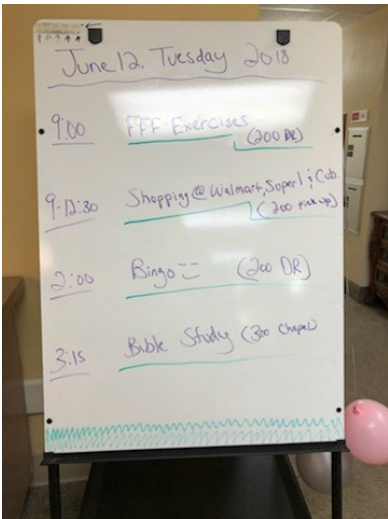 June 12, Tuesday 2018
9:00 FFF Exercises
(200 DR)
9-12:30 Shopping @ Walmart, Super 1 ; Cub.
(200 pick up)
2:00 Bingo (200 DR)
3:15 Bible Study (300 Chapel)